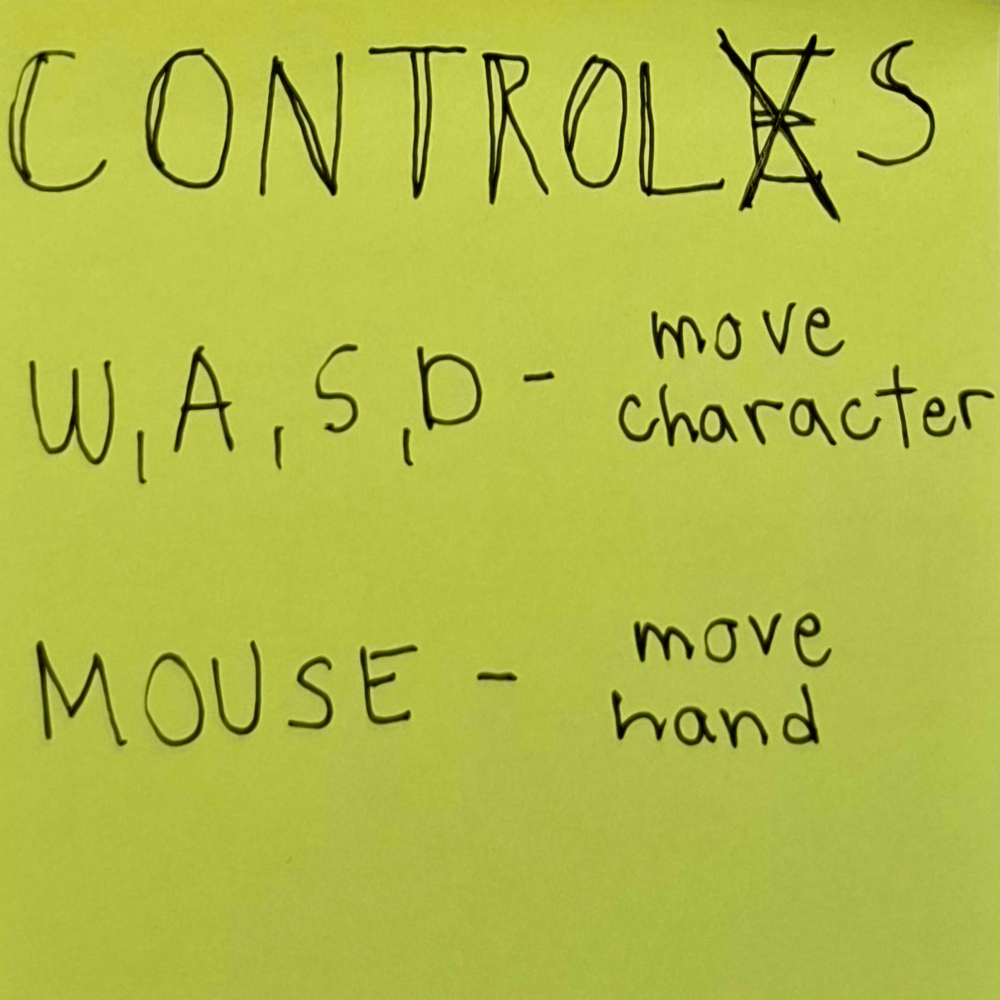 CONTROLS
W, A, S, D - move
character
MOUSE - move
hand